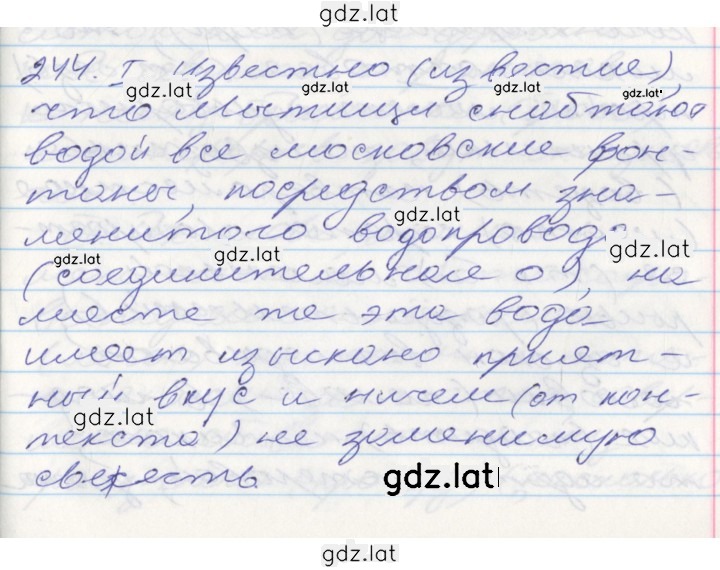 gdz.lat
244. I Известно (известие)
gdz.lat gdz.lat gdz.lat gdz.lat
что Мытищи снабжают
водой все московские фон-
таны, посредством зна-
gdz.lat
менитого водопровода
gdz.lat gdz.lat gdz.lat
(соединительная о), на
месте же эта вода
имеет изыскано прият-
ный вкус и ничем (от кон-
gdz.lat
текста) не заменимую
свежесть
gdz.lat
gdz.lat